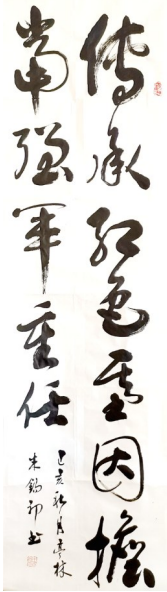 传承红色基因担
当强军重任
己亥秋月亭林
朱锡初书